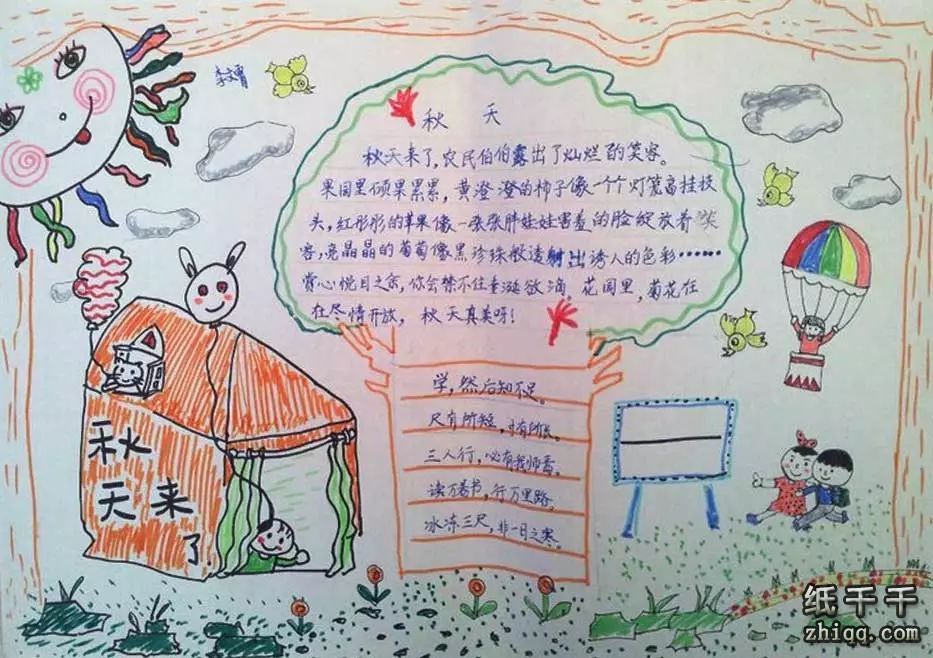 秋天
秋天来了,农民伯伯露出了灿烂的笑容。
果园里硕果累累,黄澄澄的柿子像一个个灯笼高挂枝
头,红彤彤的苹果像一张张胖娃娃害羞的脸绽放着笑
容,亮晶晶的葡萄像黑珍珠般透射出诱人的色彩……
赏心悦目之余,你会禁不住垂涎欲滴。花园里,菊花在
在尽情开放,秋天真美呀!
学,然后知不足。
尺有所短,寸有所长。
三人行,必有我师焉。
读万卷书,行万里路。
冰冻三尺,非一日之寒。
秋
天来
了
纸千千
zhiqq.com